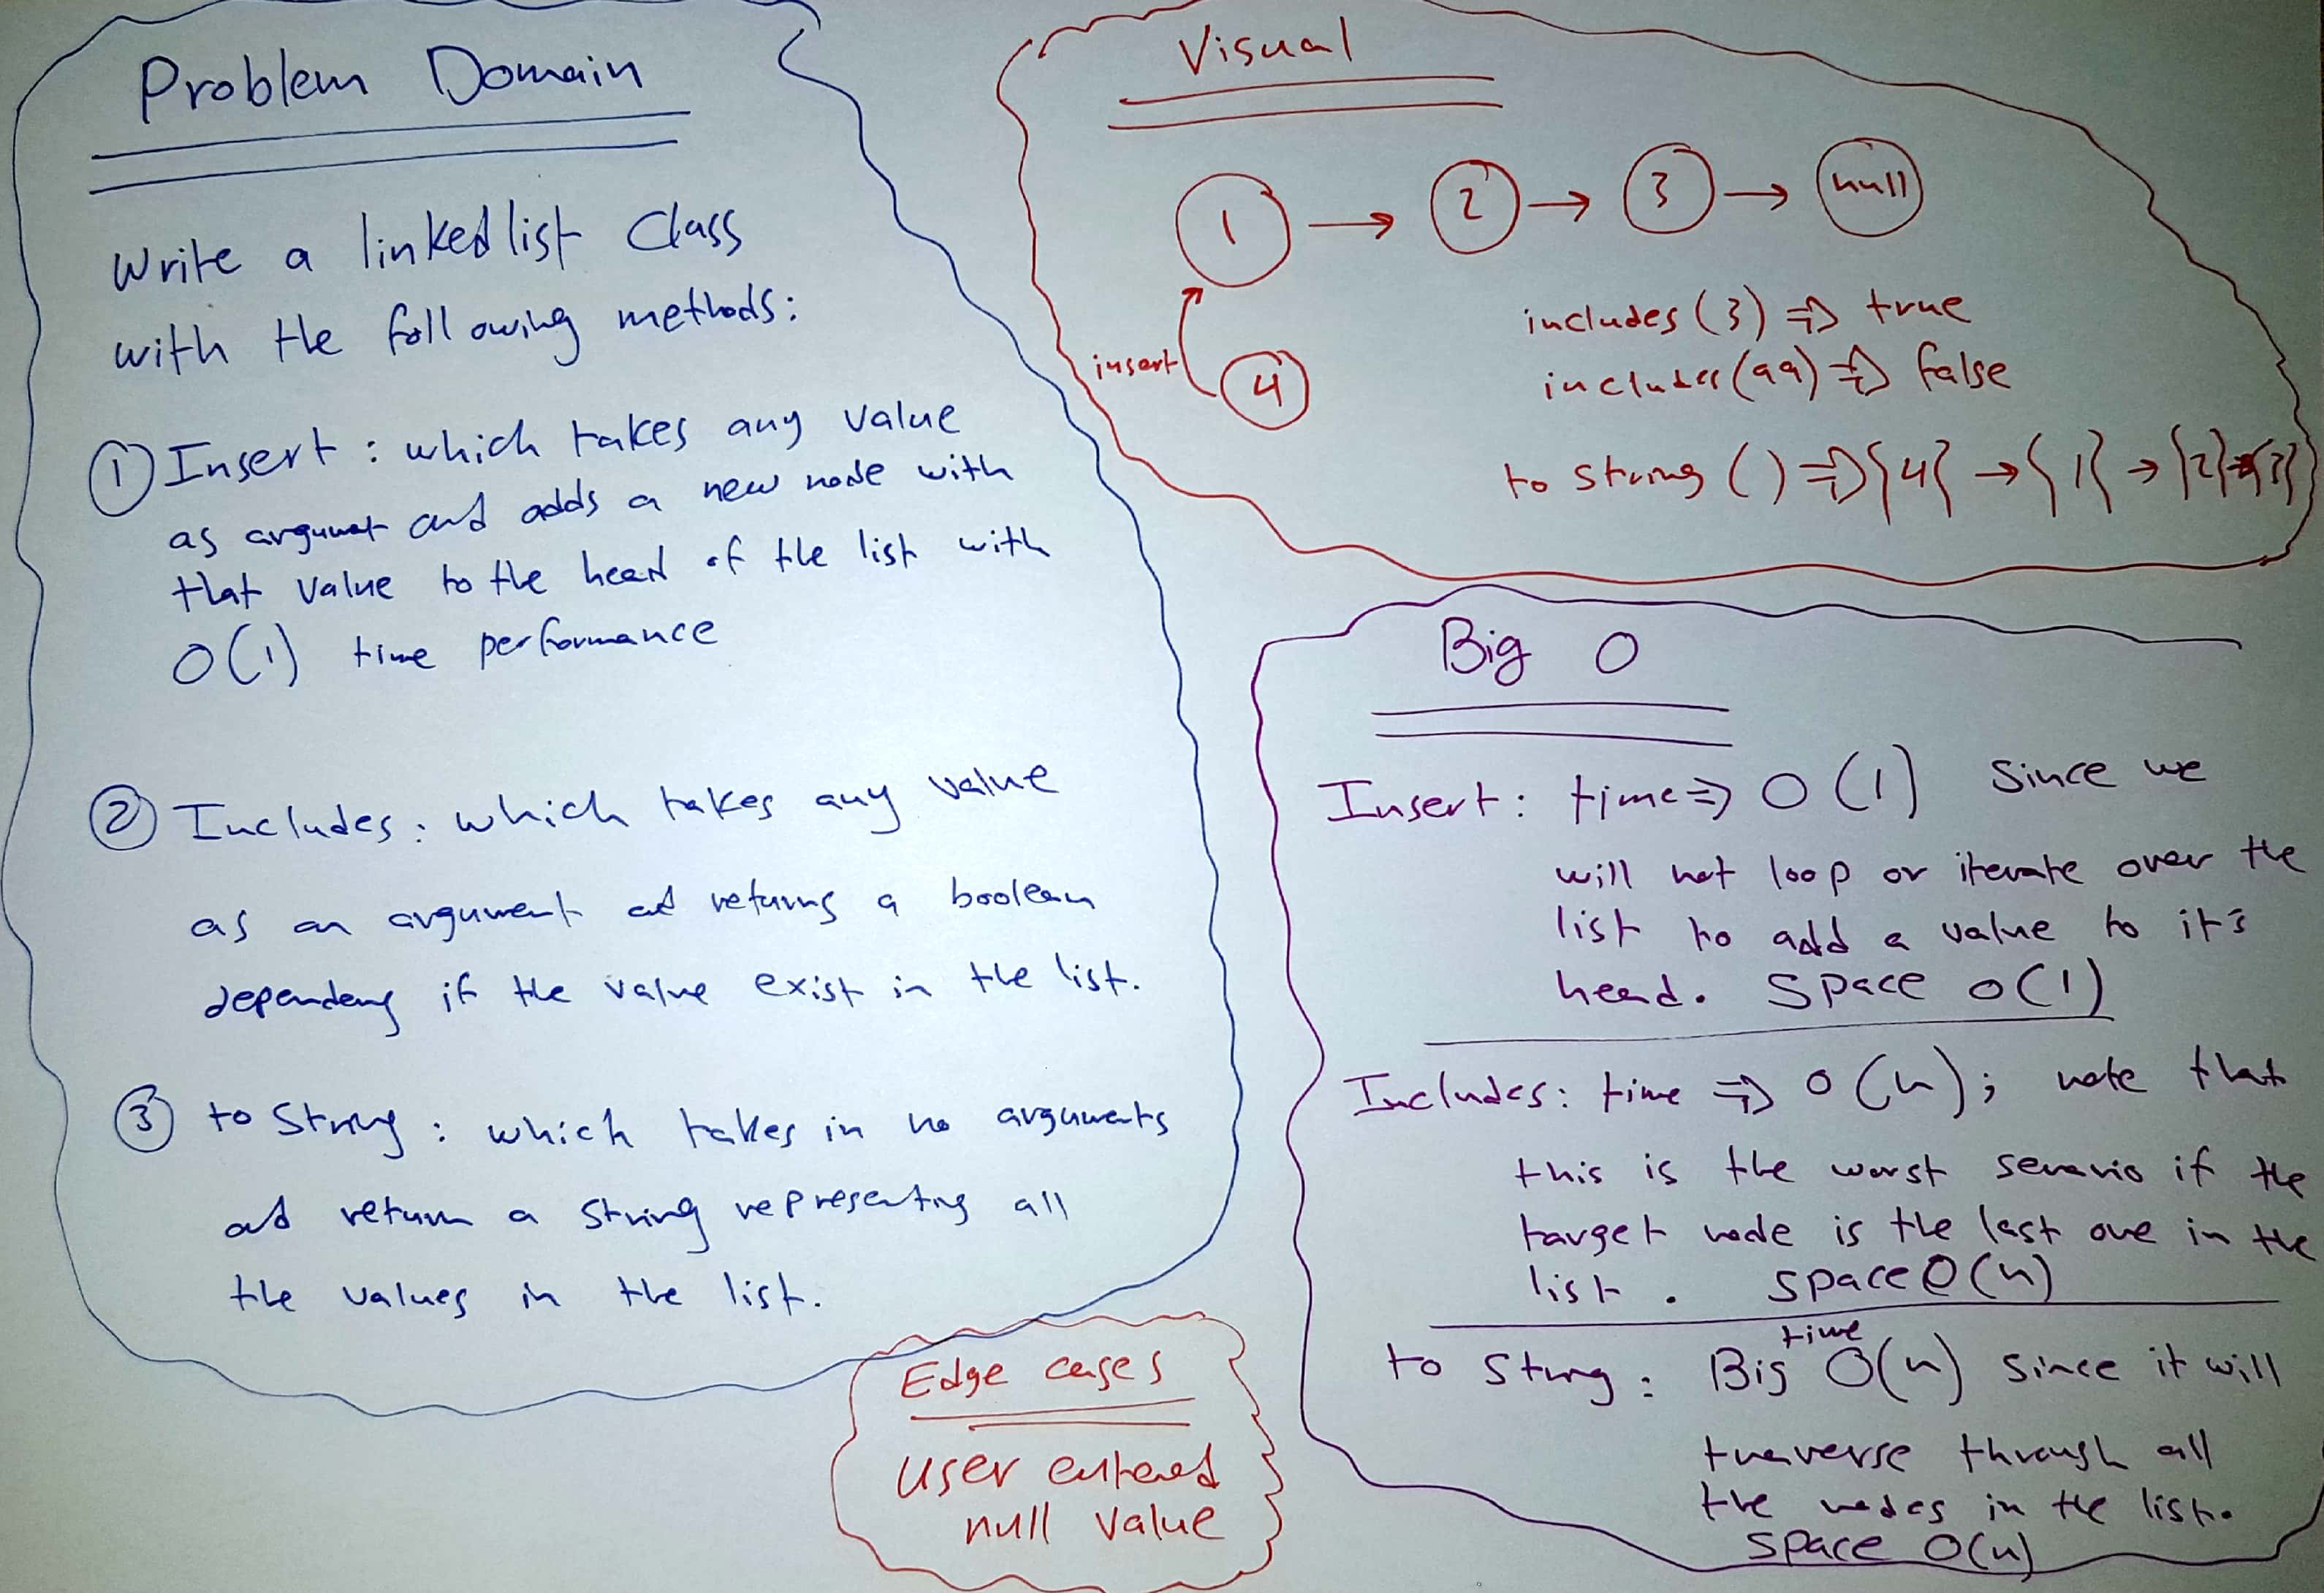 Problem Domain
Write a linked list Class
with the following methods:
① Insert : which takes any value
as argumet and adds a new node with
that value to the head of the list with
O(1) time performance
② Includes : which takes any value
as an argument ad returns a boolean
dependeng if the value exist in the list.
③ to String : which takes in no arguments
ad return a string representing all
the values in the list.
Edge cases
user entered
null value
Visual
1 → 2 → 3 → null
insert
4
includes (3) => true
includes (99) => false
to string () => {4} → {1} → {2} → {3}
Big O
Insert : time => O (1) Since we
will not loop or iterate over the
list to add a value to it's
head. Space O(1)
Includes : time => O (n) ; note that
this is the worst senario if the
target node is the last one in the
list . space O(n)
to String : Big time O(n) since it will
traverse through all
the nodes in the list.
space O(n)